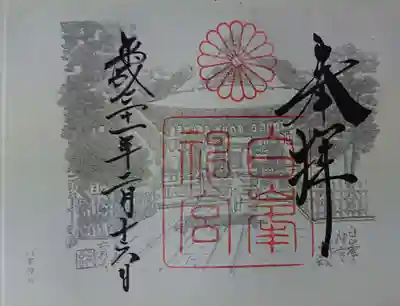 奉拝
白峯神宮
平成二十一年二月十六日